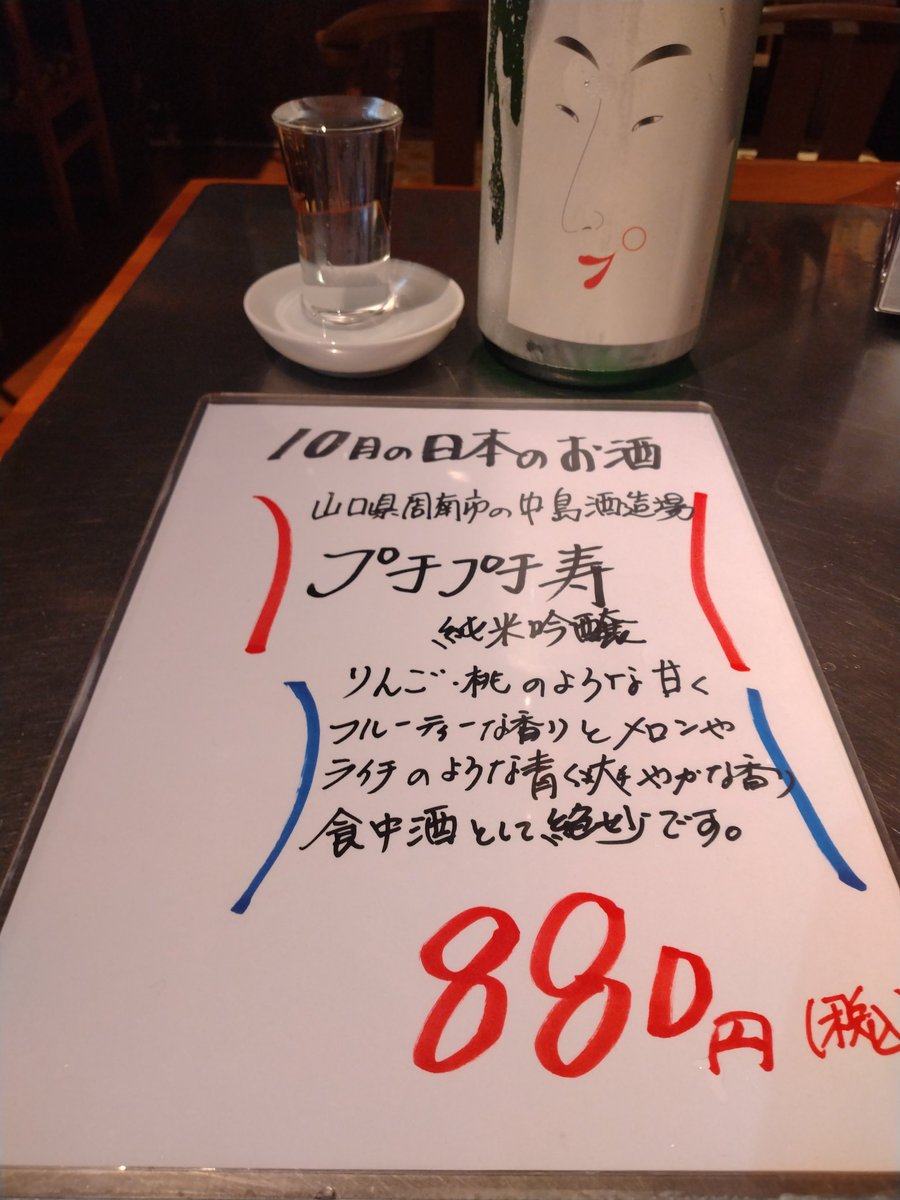 10月の日本のお酒
山口県周南市の中島酒造場
プチプチ寿
純米吟醸
りんご・桃のような甘く
フルーティーな香りとメロンや
ライチのような青く爽やかな香り
食中酒として絶妙です。
880円(税込